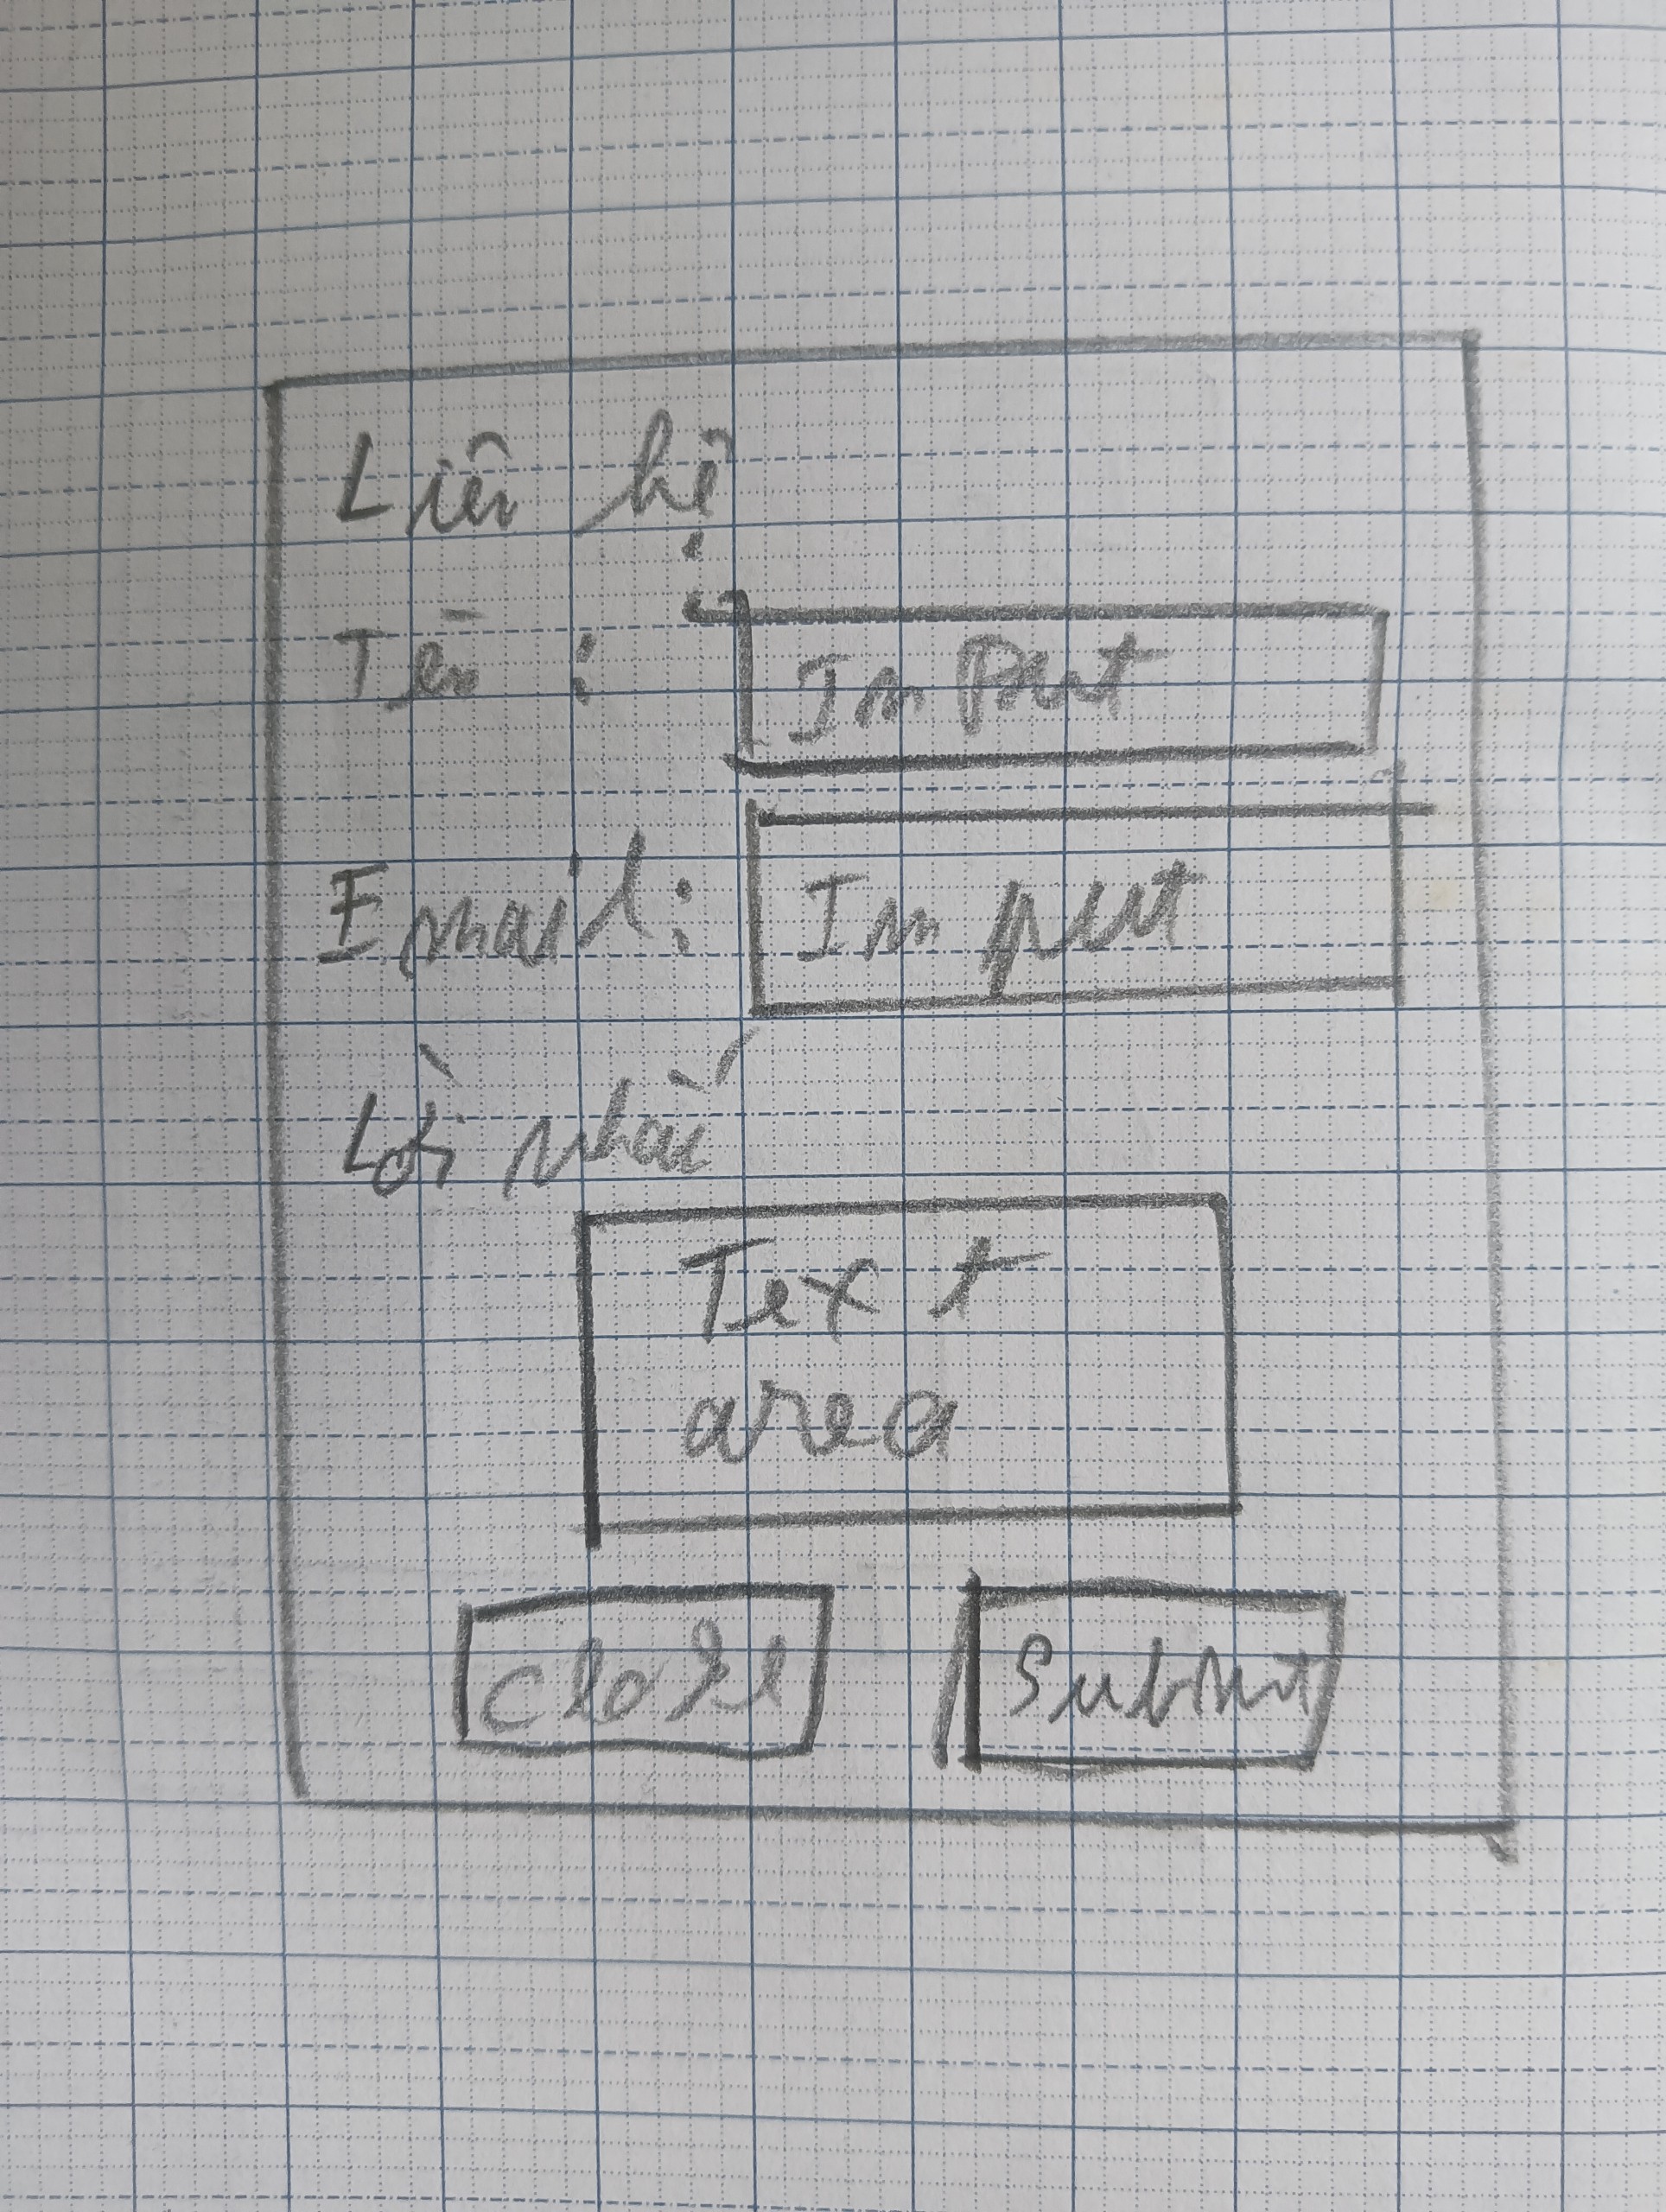 Liên hệ
Tên : Input
Email: Input
Lời nhắn
Text
area
Close Submit